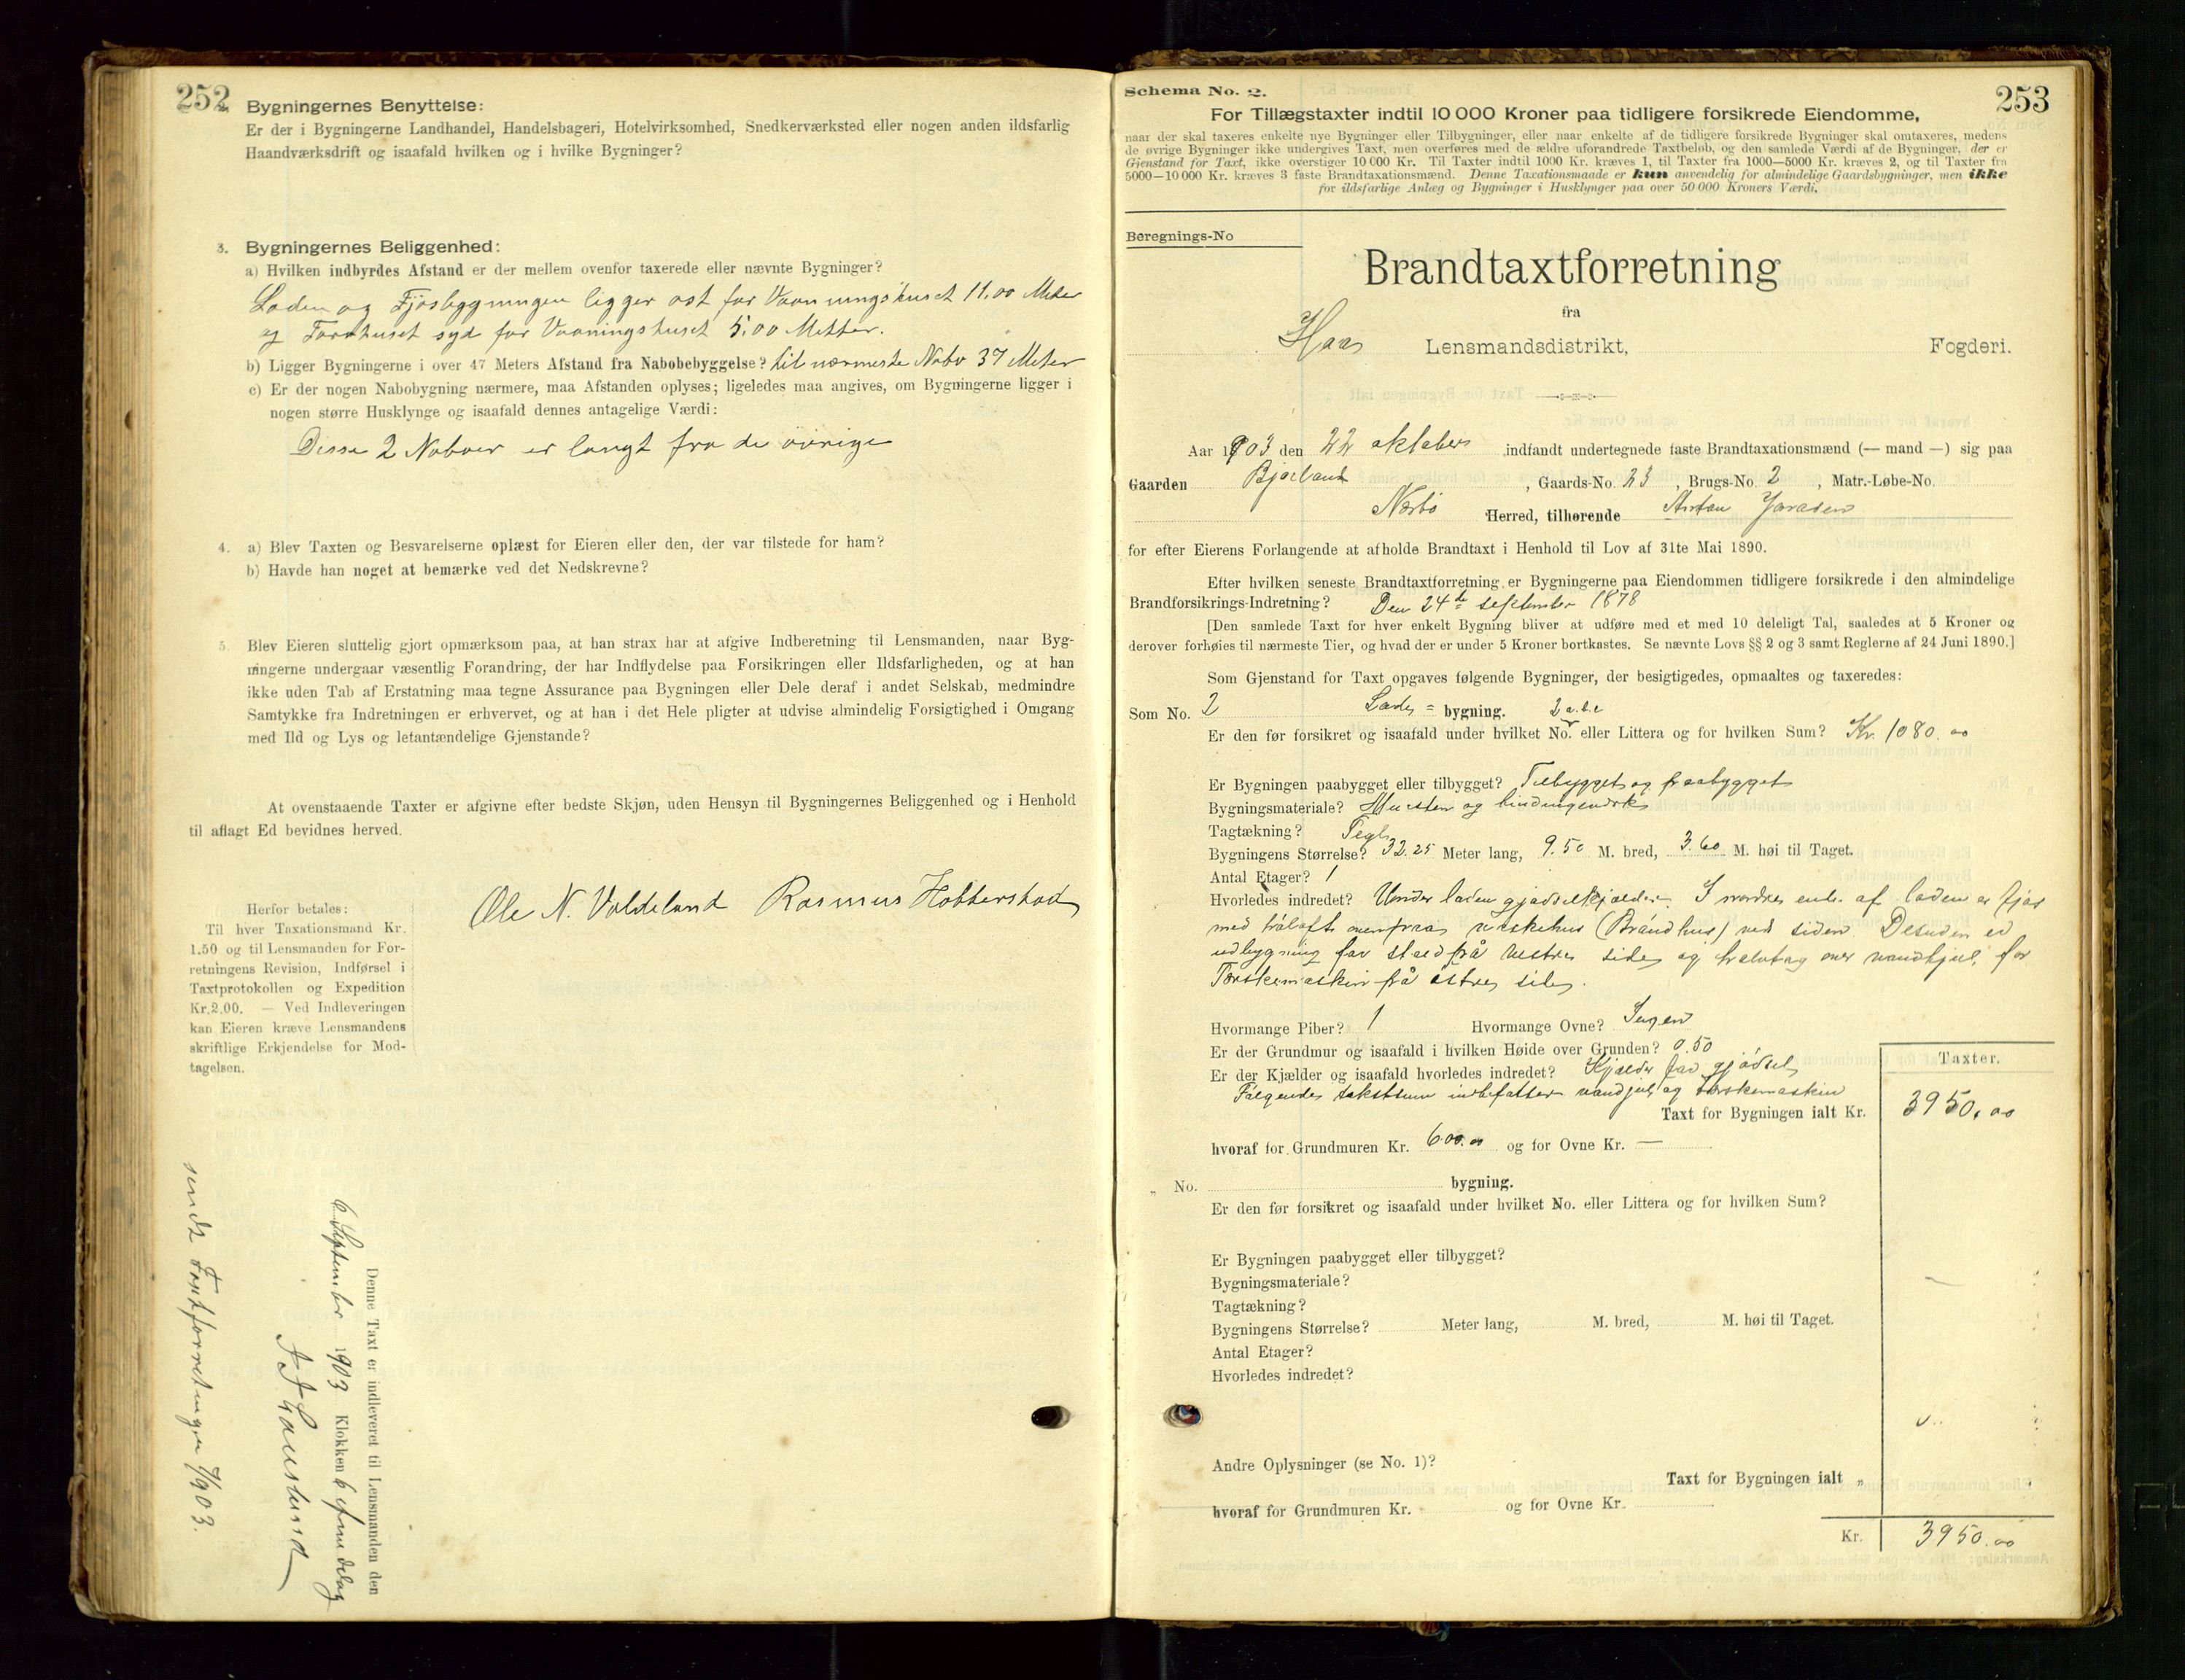 252
Bygningernes Benyttelse:
Er der i Bygningerne Landhandel, Handelsbageri, Hotelvirksomhed, Snedkerværksted eller nogen anden ildsfarlig
Haandværksdrift og isaafald hvilken og i hvilke Bygninger?
3. Bygningernes Beliggenhed:
a) Hvilken indbyrdes Afstand er der mellem ovenfor taxerede eller nævnte Bygninger?
Laden og Fjøsbygningen ligger ost for Vaaningshuset 11,00 Meter
og Torvhuset syd for Vaaningshuset 5,00 Metter.
b) Ligger Bygningerne i over 47 Meters Afstand fra Nabobebyggelse? til nærmeste Nabo 37 Meter
c) Er der nogen Nabobygning nærmere, maa Afstanden oplyses; ligeledes maa angives, om Bygningerne ligger i
nogen større Husklynge og isaafald dennes antagelige Værdi:
Disse 2 Naboer er langt fra de øvrige
4. a) Blev Taxten og Besvarelserne oplæst for Eieren eller den, der var tilstede for ham?
b) Havde han noget at bemærke ved det Nedskrevne?
5. Blev Eieren sluttelig gjort opmærksom paa, at han strax har at afgive Indberetning til Lensmanden, naar Byg-
ningerne undergaar væsentlig Forandring, der har Indflydelse paa Forsikringen eller Ildsfarligheden, og at han
ikke uden Tab af Erstatning maa tegne Assurance paa Bygningen eller Dele deraf i andet Selskab, medmindre
Samtykke fra Indretningen er erhvervet, og at han i det Hele pligter at udvise almindelig Forsigtighed i Omgang
med Ild og Lys og letantændelige Gjenstande?
At ovenstaaende Taxter er afgivne efter bedste Skjøn, uden Hensyn til Bygningernes Beliggenhed og i Henhold
til aflagt Ed bevidnes herved.
Ole N. Valdeland Rasmus Hobberstad
Herfor betales:
Til hver Taxationsmand Kr.
1.50 og til Lensmanden for For-
retningens Revision, Indførsel i
Taxtprotokollen og Expedition
Kr. 2.00. — Ved Indleveringen
kan Eieren kræve Lensmandens
skriftlige Erkjendelse for Mod-
tagelsen.
Denne Taxt er indleveret til Lensmanden den
6 September 1903 Klokken 6 eftermiddag
sendt Taxtforretninger 7/9 03.
253
Schema No. 2.
For Tillægstaxter indtil 10 000 Kroner paa tidligere forsikrede Eiendomme,
naar der skal taxeres enkelte nye Bygninger eller Tilbygninger, eller naar enkelte af de tidligere forsikrede Bygninger skal omtaxeres, medens
de øvrige Bygninger ikke undergives Taxt, men overføres med de ældre uforandrede Taxtbeløb, og den samlede Værdi af de Bygninger, der er
Gjenstand for Taxt, ikke overstiger 10 000 Kr. Til Taxter indtil 1000 Kr. kræves 1, til Taxter fra 1000—5000 Kr. kræves 2, og til Taxter fra
5000—10 000 Kr. kræves 3 faste Brandtaxationsmænd. Denne Taxationsmaade er kun anvendelig for almindelige Gaardsbygninger, men ikke
for ildsfarlige Anlæg og Bygninger i Husklynger paa over 50 000 Kroners Værdi.
Beregnings-No
Brandtaxtforretning
fra
Haa Lensmandsdistrikt, Fogderi.
Aar 1903 den 22 oktober indfandt undertegnede faste Brandtaxationsmænd (— mand —) sig paa
Gaarden Bjorland, Gaards-No. 23, Brugs-No. 2, Matr.-Løbe-No.
Nærbø Herred, tilhørende
for efter Eierens Forlangende at afholde Brandtaxt i Henhold til Lov af 31te Mai 1890.
Efter hvilken seneste Brandtaxtforretning er Bygningerne paa Eiendommen tidligere forsikrede i den almindelige
Brandforsikrings-Indretning? Den 24de september 1878
[Den samlede Taxt for hver enkelt Bygning bliver at udføre med et med 10 deleligt Tal, saaledes at 5 Kroner og
derover forhøies til nærmeste Tier, og hvad der er under 5 Kroner bortkastes. Se nævnte Lovs §§ 2 og 3 samt Reglerne af 24 Juni 1890.]
Som Gjenstand for Taxt opgaves følgende Bygninger, der besigtigedes, opmaaltes og taxeredes:
Som No. 2 Lade = bygning. 2 a.b.c
Er den før forsikret og isaafald under hvilket No. eller Littera og for hvilken Sum? Kr. 1080.00
Er Bygningen paabygget eller tilbygget? Tilbygget og paabygget
Bygningsmateriale? Mursten og bindingsverk
Tagtækning? Tegl
Bygningens Størrelse? 32.25 Meter lang, 9.50 M. bred, 3.60 M. høi til Taget.
Antal Etager? 1
Hvorledes indredet? Under laden gjødselkjælder. I nordre ende af laden er fjøs
med ved siden. Desuden er
udbygning for på vestre side og over vandhjul for
Tørskemaskin på østre side.
Hvormange Piber? 1 Hvormange Ovne? Ingen
Er der Grundmur og isaafald i hvilken Høide over Grunden? 0.50
Er der Kjælder og isaafald hvorledes indredet? Kjælder for gjødsel
Følgende takstsum indbefatter vandhjul og tørskemaskin
Taxter.
Taxt for Bygningen ialt Kr. 3950.00
hvoraf for Grundmuren Kr. 600.00 og for Ovne Kr. —
" No. bygning.
Er den før forsikret og isaafald under hvilket No. eller Littera og for hvilken Sum?
Er Bygningen paabygget eller tilbygget?
Bygningsmateriale?
Tagtækning?
Bygningens Størrelse? Meter lang, M. bred, M. høi til Taget.
Antal Etager?
Hvorledes indredet?
Andre Oplysninger (se No. 1)?
Taxt for Bygningen ialt "
hvoraf for Grundmuren Kr. og for Ovne Kr.
Kr. 3950.00